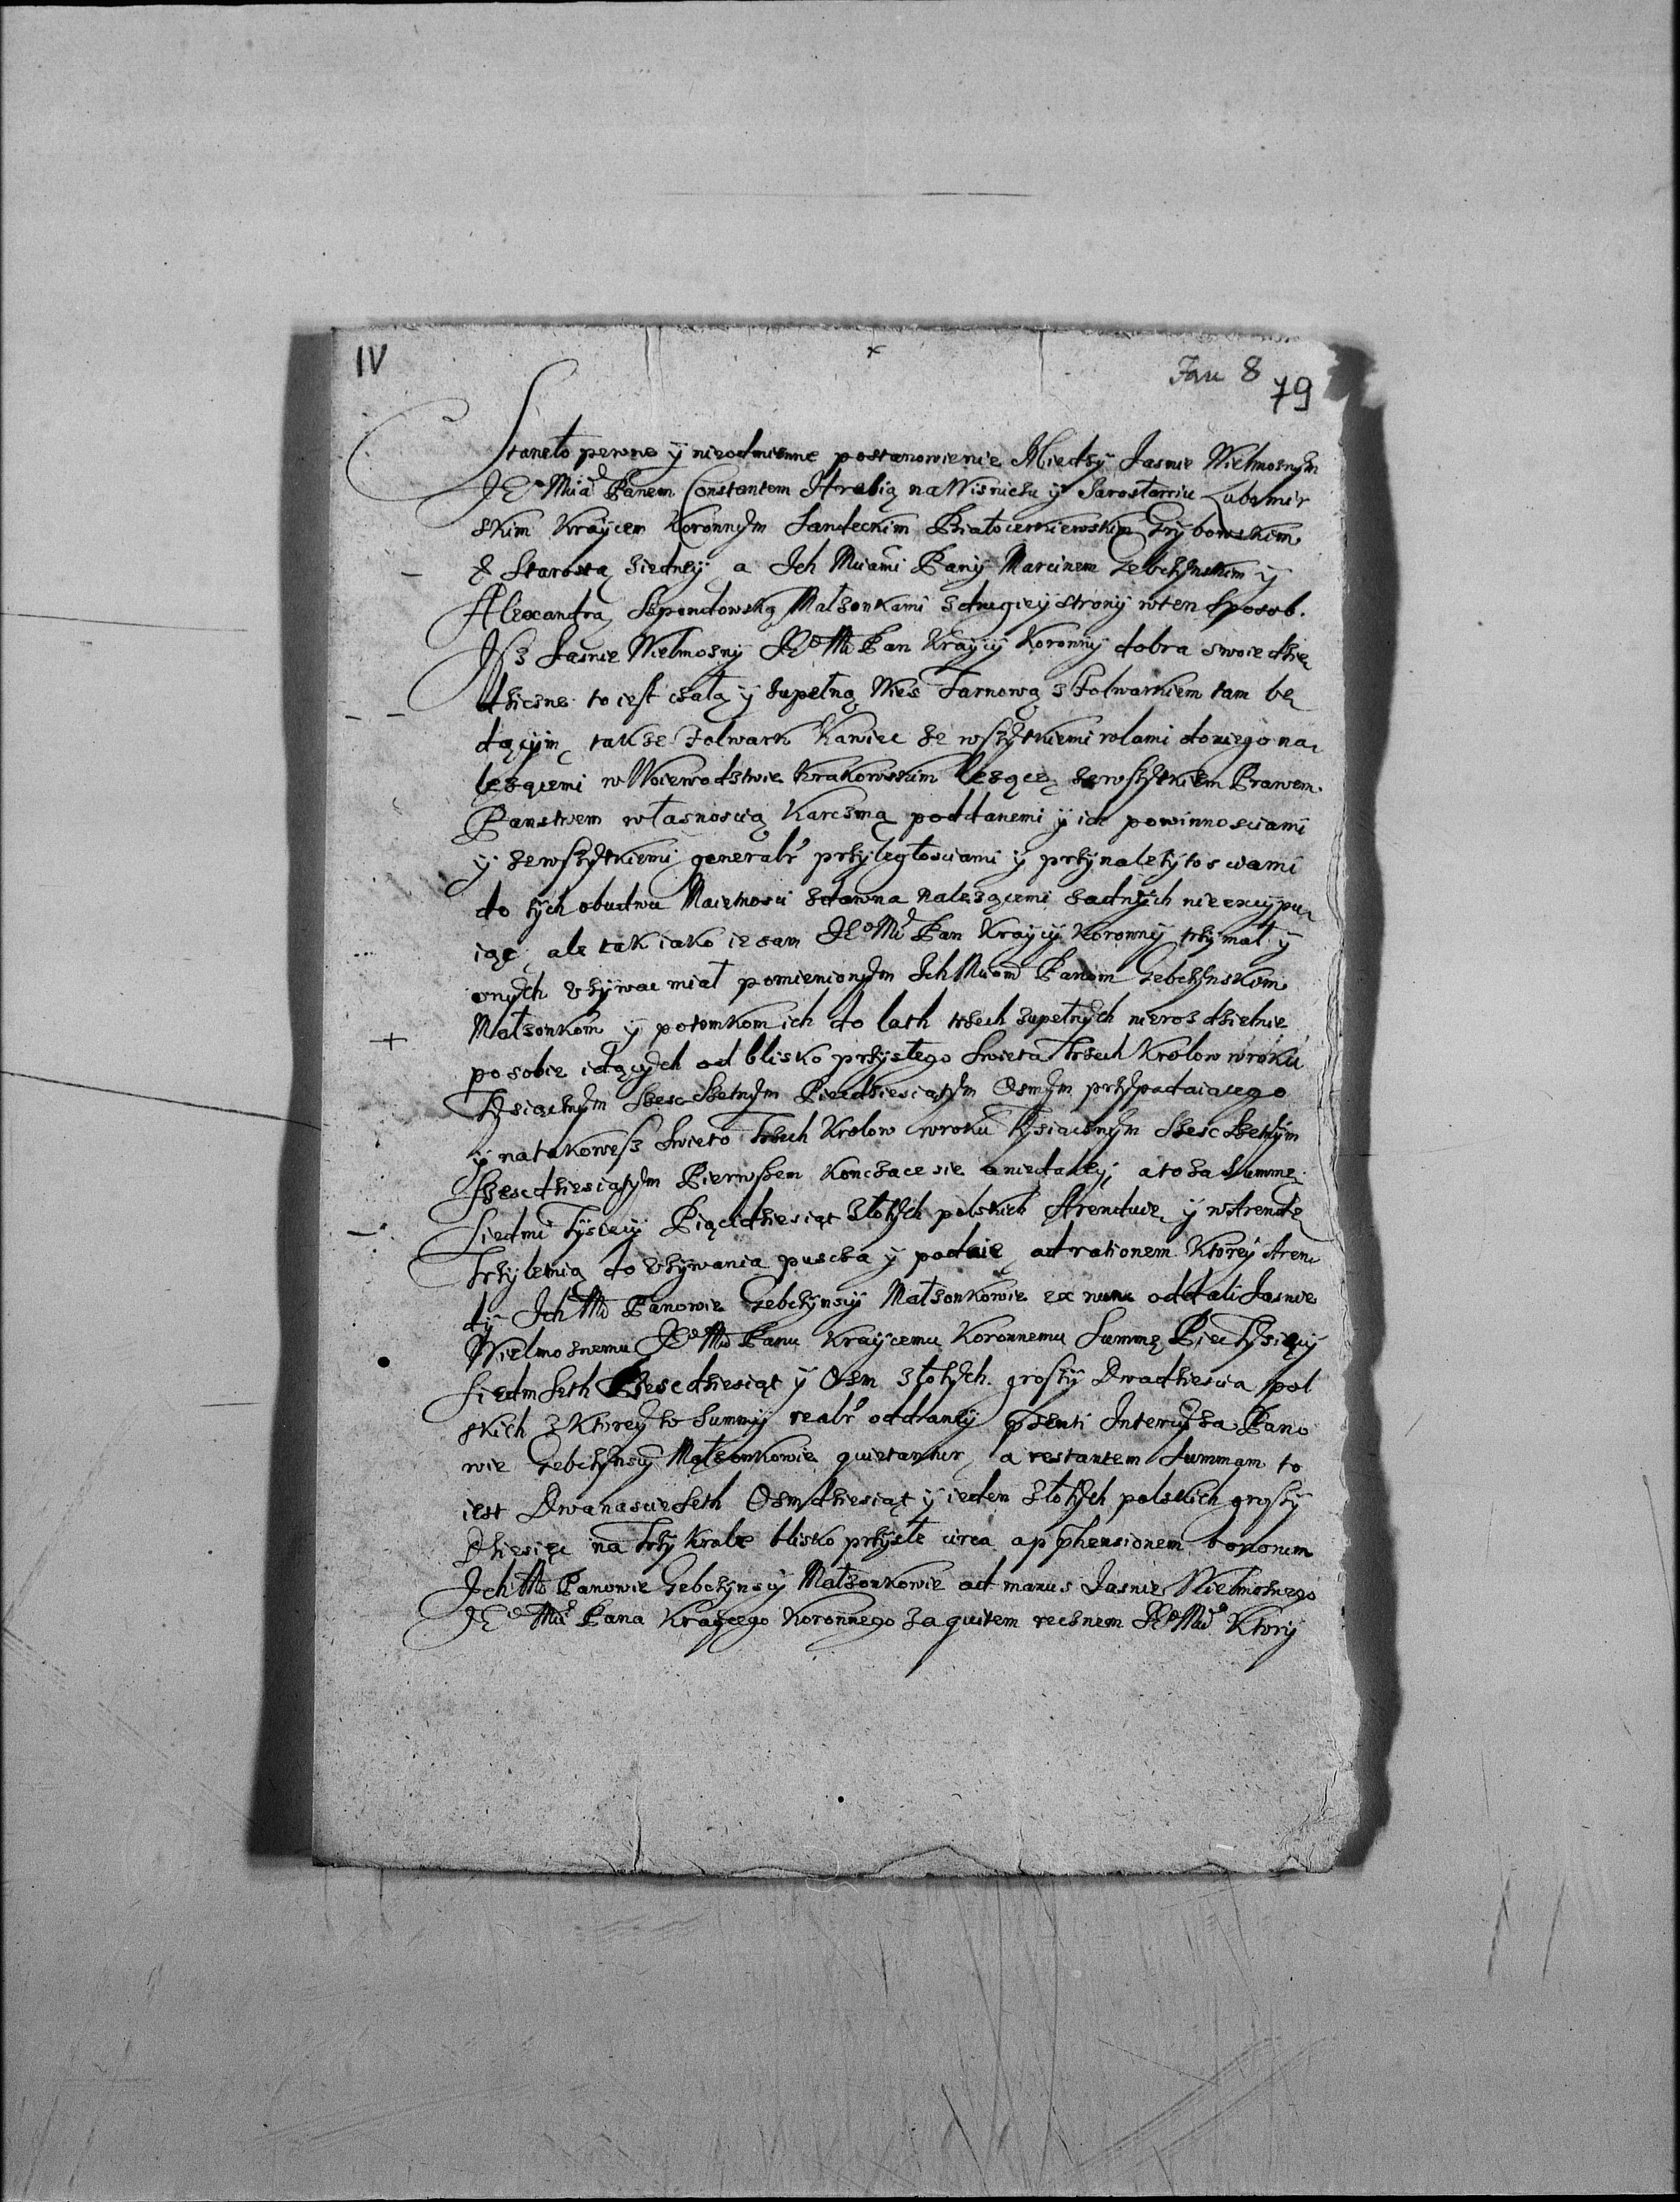 IV
x
Jan 8
79
Staneło pewne ÿ nieodmienne postanowienie Miedzÿ Jasnie Wielmoznÿm
JE° Mią Panem Constantem Hrabią na Wisniczu ÿ Jarosławiu Lubomir
skim Kraycem Koronnÿm Sandeckim Białocerkiewskim Grÿbowskim
& Starostą ziedneÿ a Ich Mciami Panÿ Marcinem Gebczÿnskim ÿ
Alexandrą Małzonkami zdrugieÿ stronÿ wten sposob.
Isz Jasnie Wielmoznÿ JE° Mć Pan Kraÿcÿ Koronnÿ dobra swoie dzie
dziczne to iest całą ÿ zupełną Wies Tarnową z Folwarkiem tam be
dącÿm takze Folwark Kawiec ze wszÿtkiemi rolami do niego na
lezącemi w Woiewodztwie Krakowskim lezące zewszÿtkiem Prawem
Panstwem własnoscią Karczmą poddanemi ÿ ich powinnosciami
ÿ zewszÿtkiemi generalr przÿległosciami ÿ przÿnalezÿtosciami
do tÿch obudwu Maietnosci zdawna nalezącemi zadnÿch nie excÿpu
iąc ale tak iako ie sam JE° Mć Pan Kraÿcÿ Koronnÿ trzÿmał ÿ
onÿch vzÿwac miał pomienionÿm Ich Mciom Panom Gebczÿnskim
Małzonkom ÿ potomkom ich do lath trzech zupełnÿch nierozdzielnie
po sobie idącÿch od blisko przÿszłego Swieta Trzech Krolow wroku
Tÿsiącznÿm Szesc Setnÿm Piecdziesiątÿm Osmÿm przÿpadaiacego
ÿ natakowesz Swieto Trzech Krolow wroku Tÿsiącznÿm Szesc Setnÿm
Szescdziesiątÿm Pierwszem Konczące sie a niedaleÿ, a to za Summe
Siedmi Tÿsiecÿ Pięcidziesiąt Złotÿch polskich Arenduie ÿ wArende
Trzÿletnią do vzÿwania puscza ÿ podaie ad rationem Ktoreÿ Aren
dÿ Ich Mć Panowie Gebczÿnscÿ Małzonkowie ex nunc oddali Jasnie
Wielmoznemu JE° Mć Panu Kraÿcemu Koronnemu Summę Piec Tÿsięcÿ
Siedm Seth Szescdziesiąt ÿ Osm złotÿch groszÿ Dwadziescia pol
skich z Ktoreÿ to Summÿ realr oddaneÿ pszenti Intercÿzą Pano
wie Gebczÿnscÿ Małzonkowie quietantur, a restantem Summam to
iest Dwanascie Seth Osmdziesiąt ÿ ieden złotÿch polskich groszÿ
Dziesięc na Trzÿ Krole blisko przÿszłe circa appraehensionem bonorum
Ich Mć Panowie Gebczÿnscÿ Małzonkowie ad manus Jasnie Wielmoznego
JE° Mći Pana Kraÿcego Koronnego za quitem recznem JE° Mći Ktorÿ